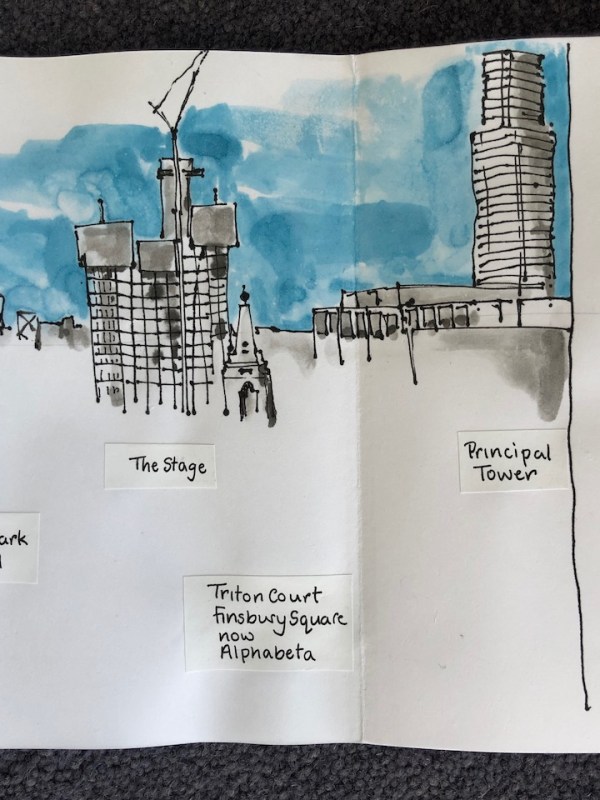 The Stage
Principal
Tower
ark
Triton Court
Finsbury Square
now
Alphabeta